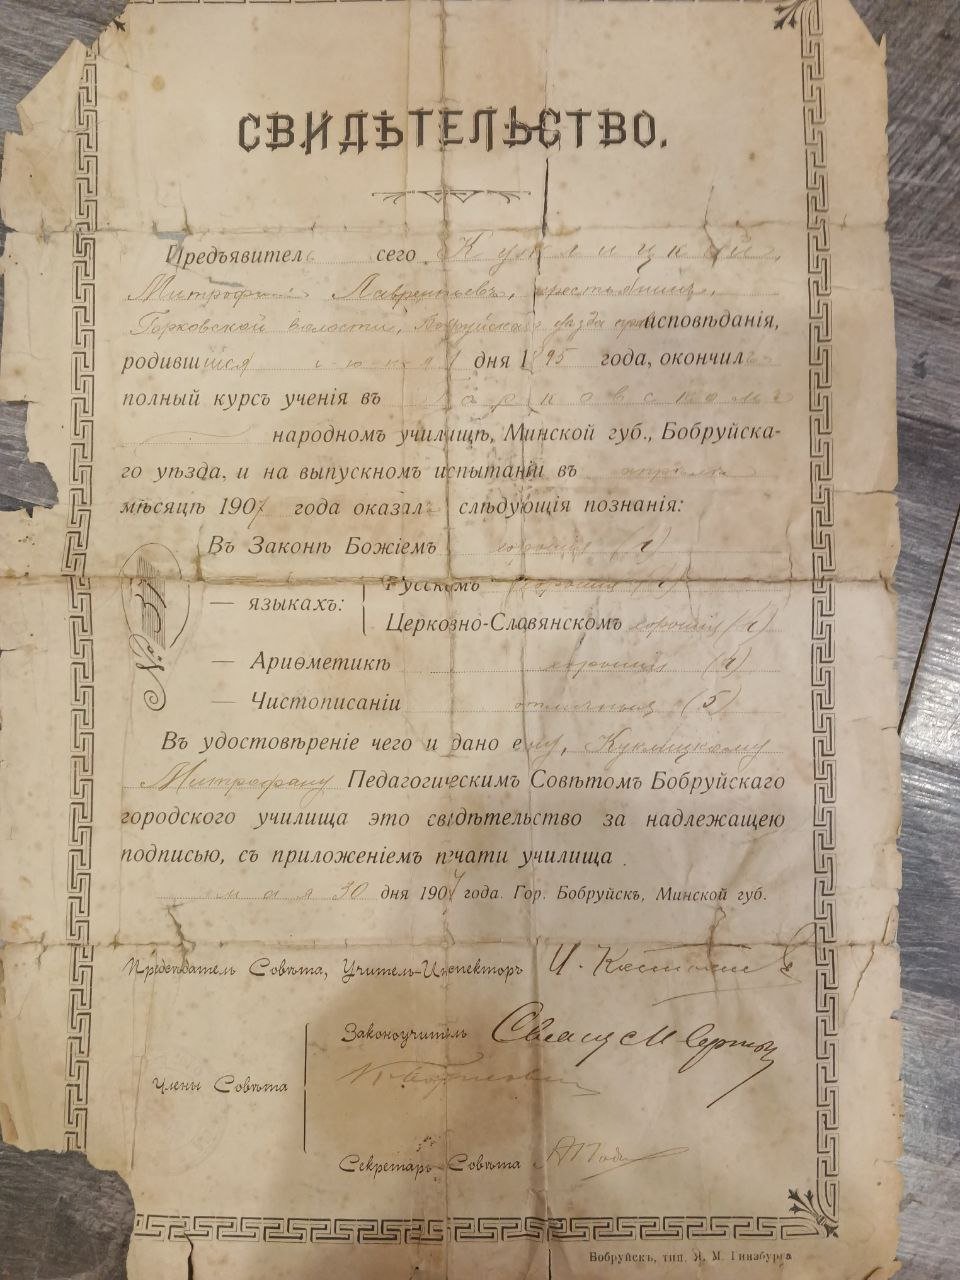 СВИДѢТЕЛЬСТВО.
Предъявитель сего Куклицкій,
Митрофанъ Лаврентьевъ, крестьянинъ,
Горковской волости, Бобруйскаго уѣзда исповѣданія,
родившійся іюня 1 дня 1895 года, окончилъ
полный курсъ ученія въ Горковскомъ
народномъ училищѣ, Минской губ., Бобруйска-
го уѣзда, и на выпускномъ испытаніи въ апрѣлѣ
мѣсяцѣ 1907 года оказалъ слѣдующія познанія:
Въ Законѣ Божіемъ хорошія (4)
— языкахъ:
Русскомъ хорошія (4)
Церковно-Славянскомъ хорошія (4)
— Ариѳметикѣ хорошія (4)
— Чистописаніи отличныя (5)
№
Въ удостовѣреніе чего и дано ему, Куклицкому
Митрофану Педагогическимъ Совѣтомъ Бобруйскаго
городского училища это свидѣтельство за надлежащею
подписью, съ приложеніемъ печати училища.
мая 30 дня 1907 года. Гор. Бобруйскъ, Минской губ.
Предсѣдатель Совѣта, Учитель-Инспекторъ И.
Законоучитель Свящ М
Члены Совѣта
Секретарь Совѣта
Бобруйскъ, тип. Я. М. Гинзбурга